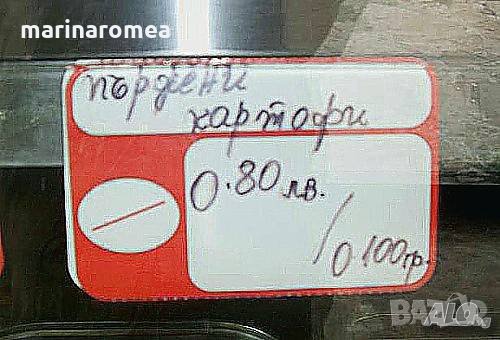 marinaromea
пържени
картофи
0.80 лв.
/0 100гр.
BAZAR